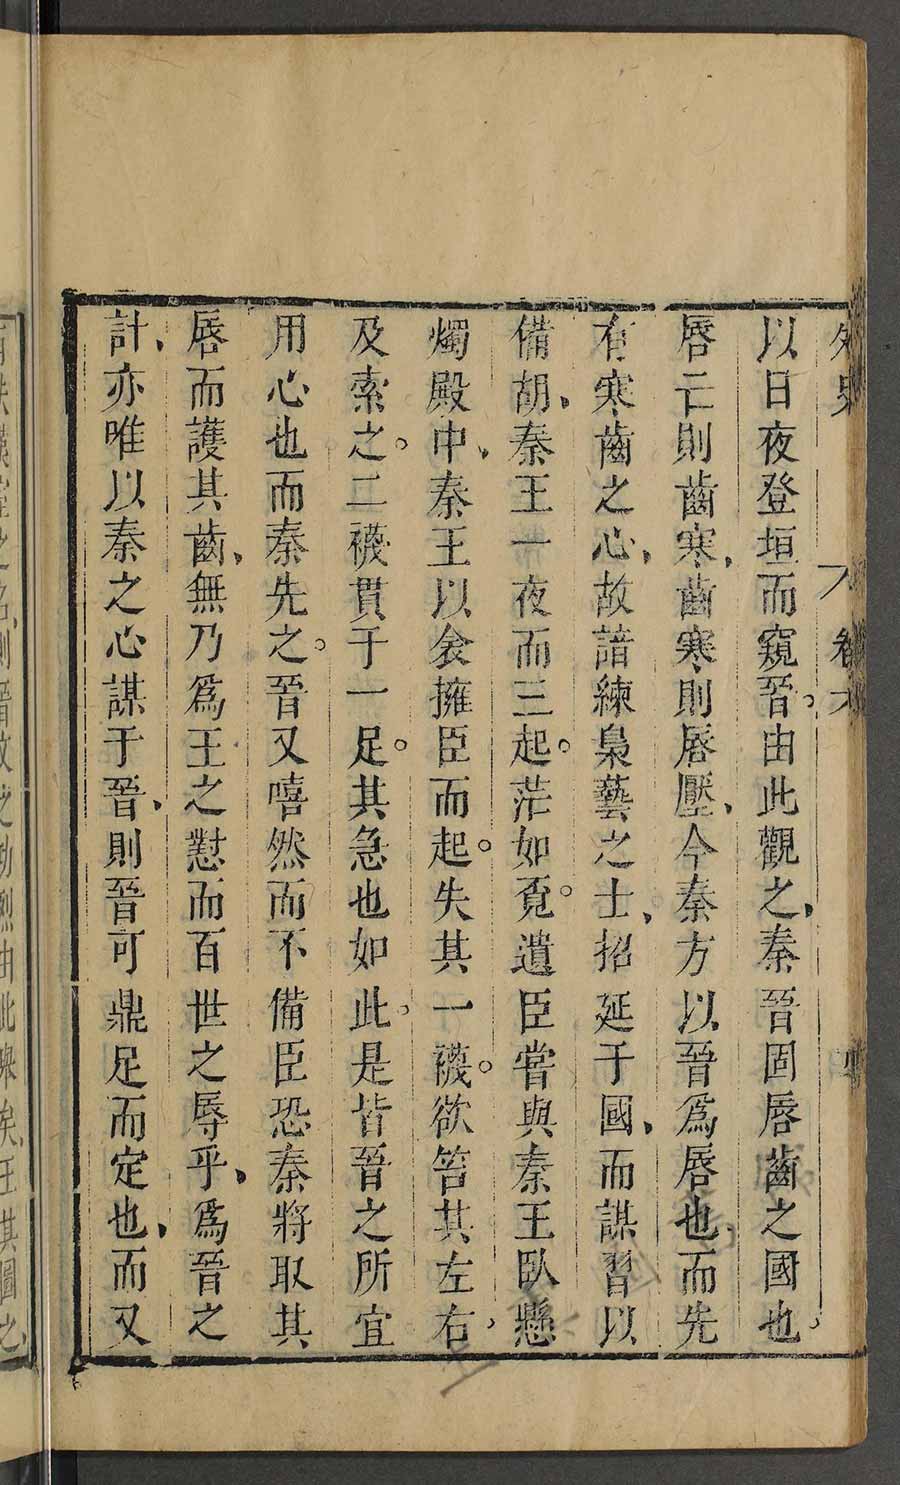 以日夜登垣而窺晉。由此觀之、秦晉固唇齒之國也、
唇亡則齒寒、齒寒、則唇壓、今秦方以晉爲唇也、而先
有寒齒之心、故諳練梟藝之士、招延于國、而謀習以
備胡、秦王一夜而三起。茫如覓。遺臣嘗與秦王臥懸
燭殿中、秦王以衾擁臣而起。失其一襪。欲笞其左右、
及索之。二襪貫于一足。其急也如此。是皆晉之所宜
用心也而秦先之。晉又嘻然而不備臣恐秦將取其
唇而護其齒、無乃爲王之懟而百世之辱乎、爲晉之
計、亦唯以秦之心謀于晉、則晉可鼎足而定也、而又